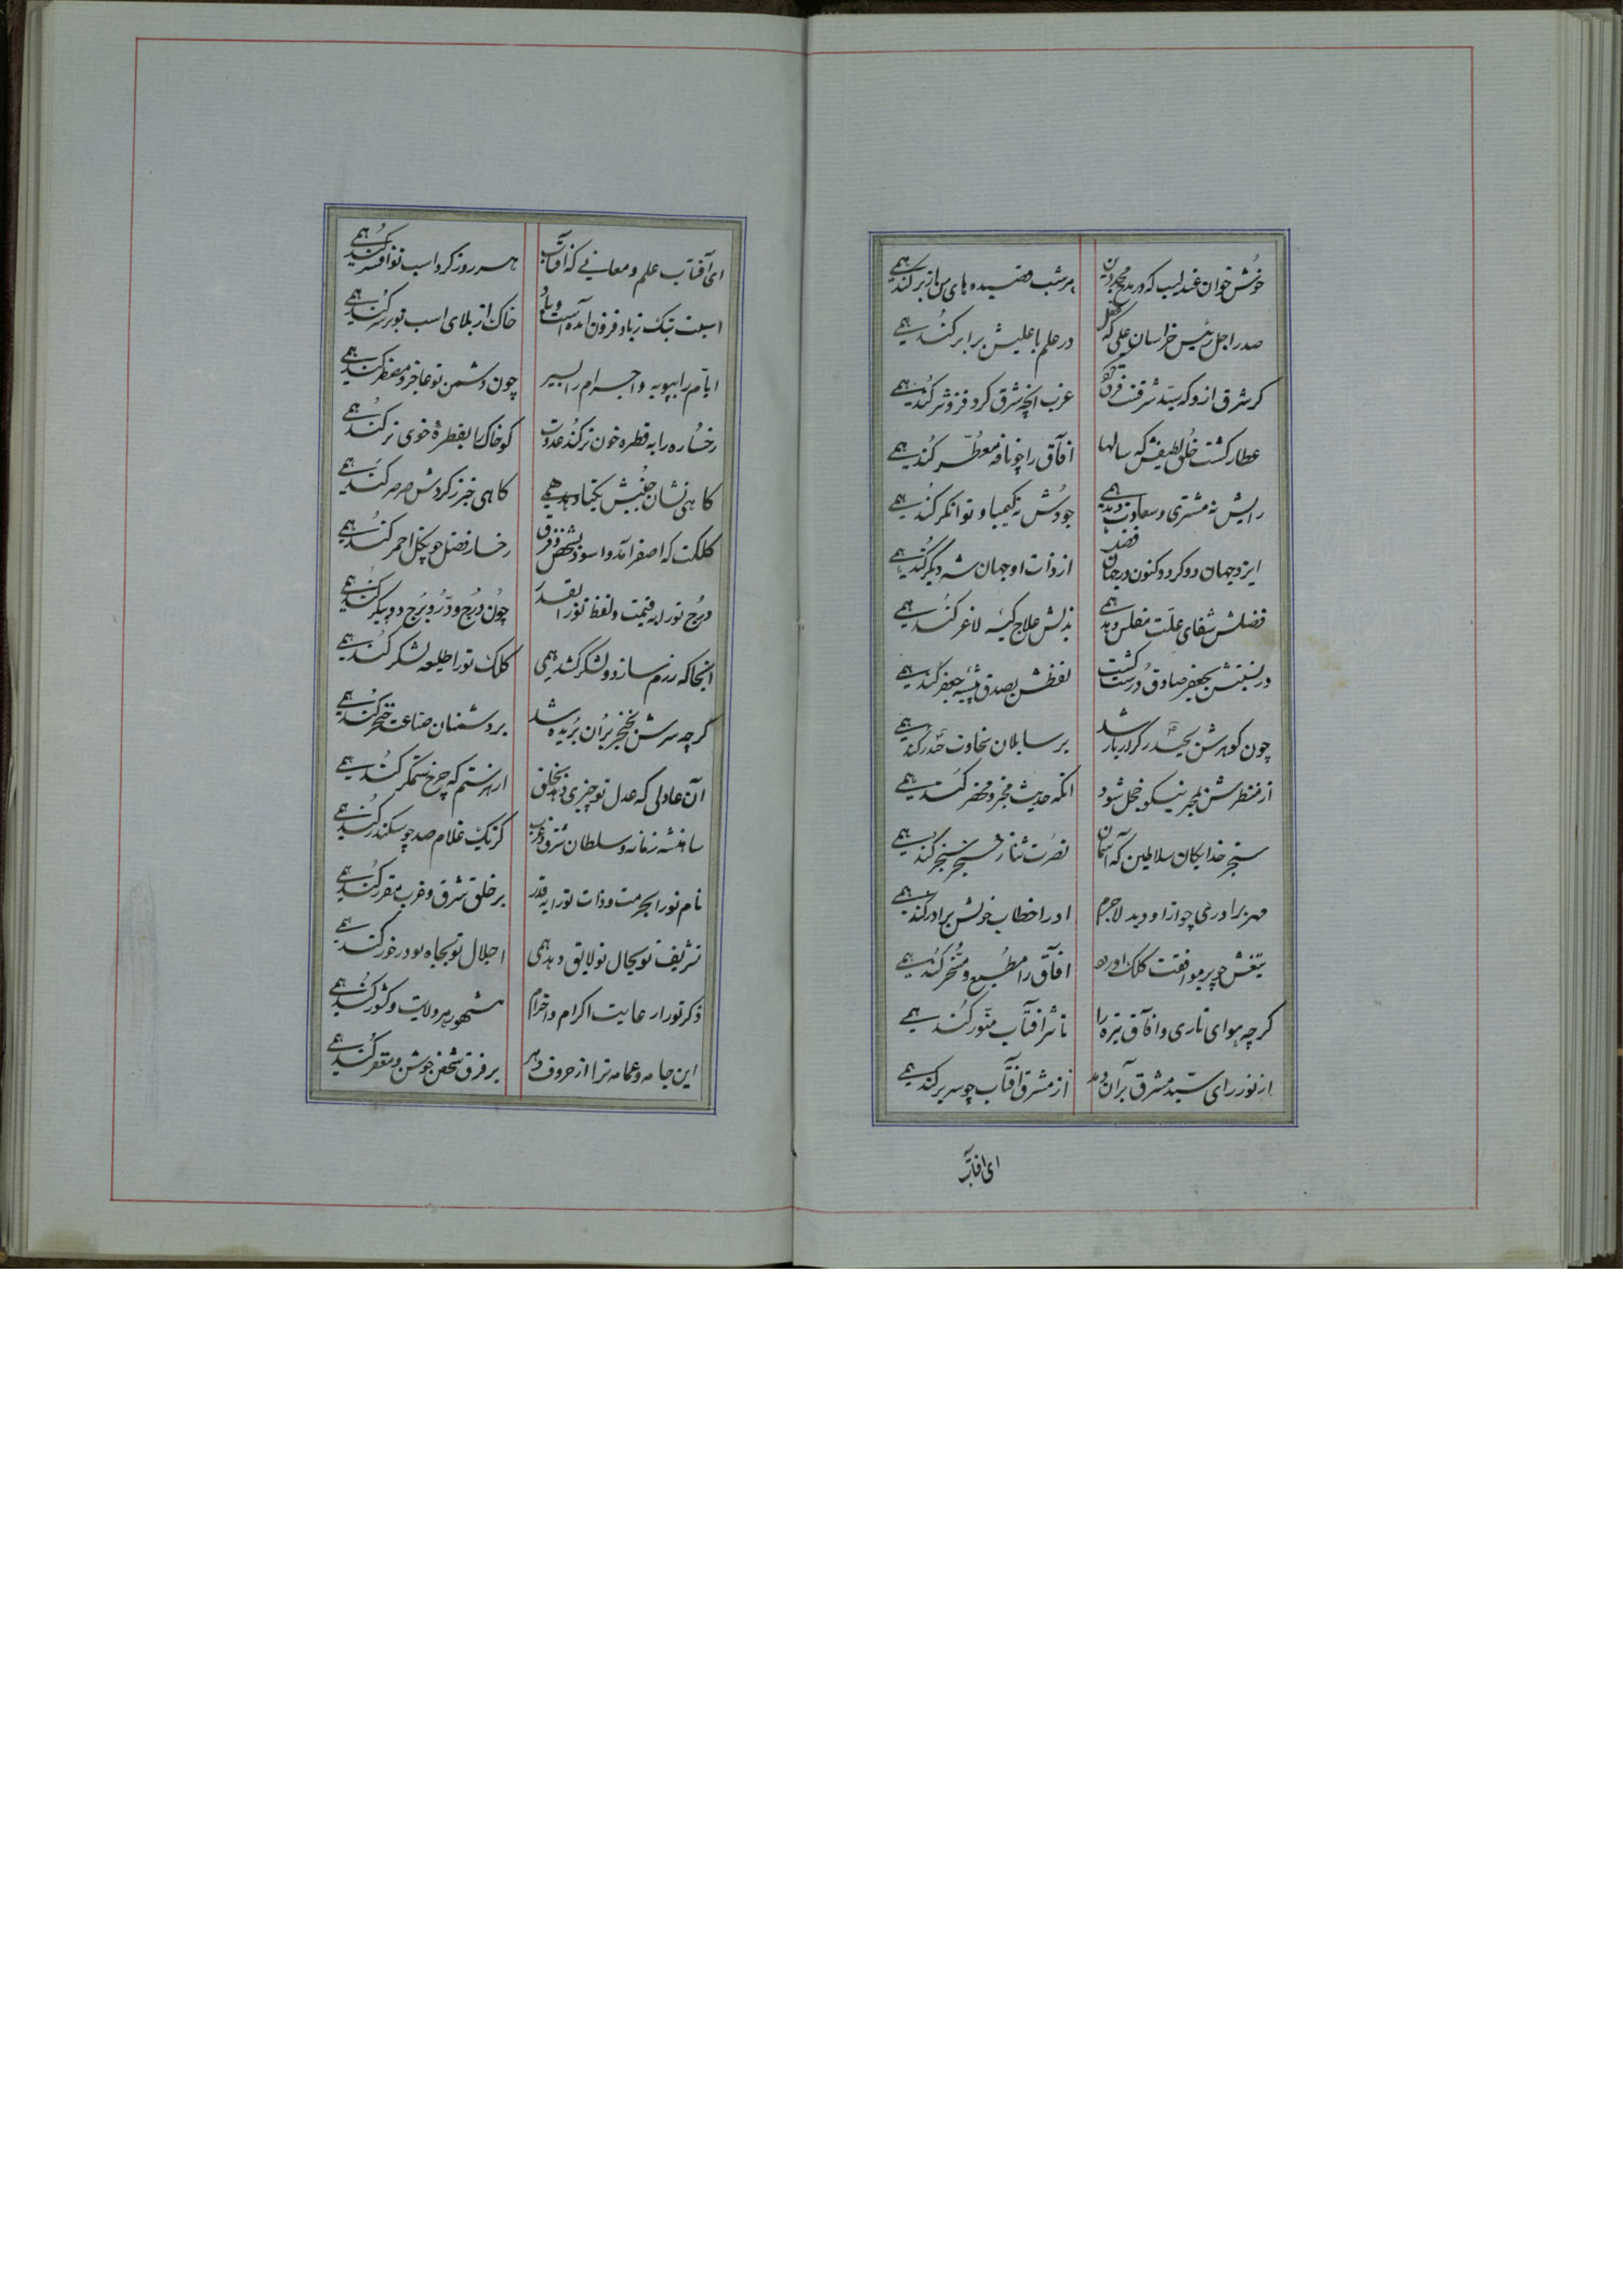 خوش خوان عندلیب که در مدح مجد دین هر شب قصیده های من از بر کند همی
صدر اجل رئیس خراسان علی که عقل در علم با علیش برابر کند همی
کر شرق ازو که سید شرقست فرق غرب انچه شرق کرد فزونتر کند همی
عطار کشت خلق لطیفش که سالها آفاق را چو نافه معطر کند همی
رایش نه مشتری و سعادت دهد همی جودش نه کیمیا و توانکر کند همی
ایزد جهان دو کرد و کنون در جهان فضل از ذات او جهان سه دیکر کند همی
فضلش شفای علت مفلس دهد همی بذلش علاج کیسه لاغر کند همی
در نسبتش بجعفر صادق درست کشت لفظش بصدق پیشه جعفر کند همی
چون کوهرش بحیدر کرار باز شد بر سایلان سخاوت حیدر کند همی
از منظرش بمخبر نیکو خجل شود انکه حدیث مخبر و منظر کند همی
سنجر خدایکان سلاطین که آسمان نصرت نثار خنجر سنجر کند همی
مهر برادری چو ازو دید لاجرم او را خطاب خویش برادر کند همی
تیغش چو بر موافقت کلک او رود آفاق را مطیع و مسخر کند همی
کرچه هوای تاری و آفاق تیره را تاثیر آفتاب منور کند همی
از نور رای سید مشرق بر آن دمد از مشرق آفتاب چو سر بر کند همی
ای آفتاب
ای آفتاب علم و معانی که آفتاب هر روز کرد اسب تو افسر کند همی
اسبت بتک ز باد فزون آمده است و باد خاک از بلای اسب تو بر سر کند همی
ایام را بپویه و اجرام را بسیر چون دشمن تو عاجز و مضطر کند همی
رخساره را به قطره خون تر کند عدوت کو خاک را بقطره خوی تر کند همی
کاهی نشان جنبش نکبا دهد همی کاهی خبر ز کردش صرصر کند همی
کلکت که اصفر آمد و اسود بشخص و فرق رخسار فضل چو بکل احمر کند همی
درج تو را به قیمت و لفظ تو را بقدر چون درج و در و برج دو پیکر کند همی
آنجا که رزم سازد و لشکر کشد همی کلک تو را طلیعه لشکر کند همی
کرچه سرش بخنجر بران بریده شد بر دشمنان صناعت خنجر کند همی
آن عادلی که عدل تو چیزی دهد بخلق ار هر ستم که چرخ ستمکر کند همی
شاهنشه زمانه و سلطان شرق و غرب کز یک غلام صد چو سکندر کند همی
نام تو را بحرمت و ذات تو را به قدر بر خلق شرق و غرب مقرر کند همی
تشریف تو بحال تو لایق دهد همی اجلال تو بجاه تو در خور کند همی
ذکر تو را رعایت اکرام و احترام مشهور هر ولایت و کشور کند همی
این جامه و عمامه ترا از حروف دهر بر فرق شخص جوشن و مغفر کند همی